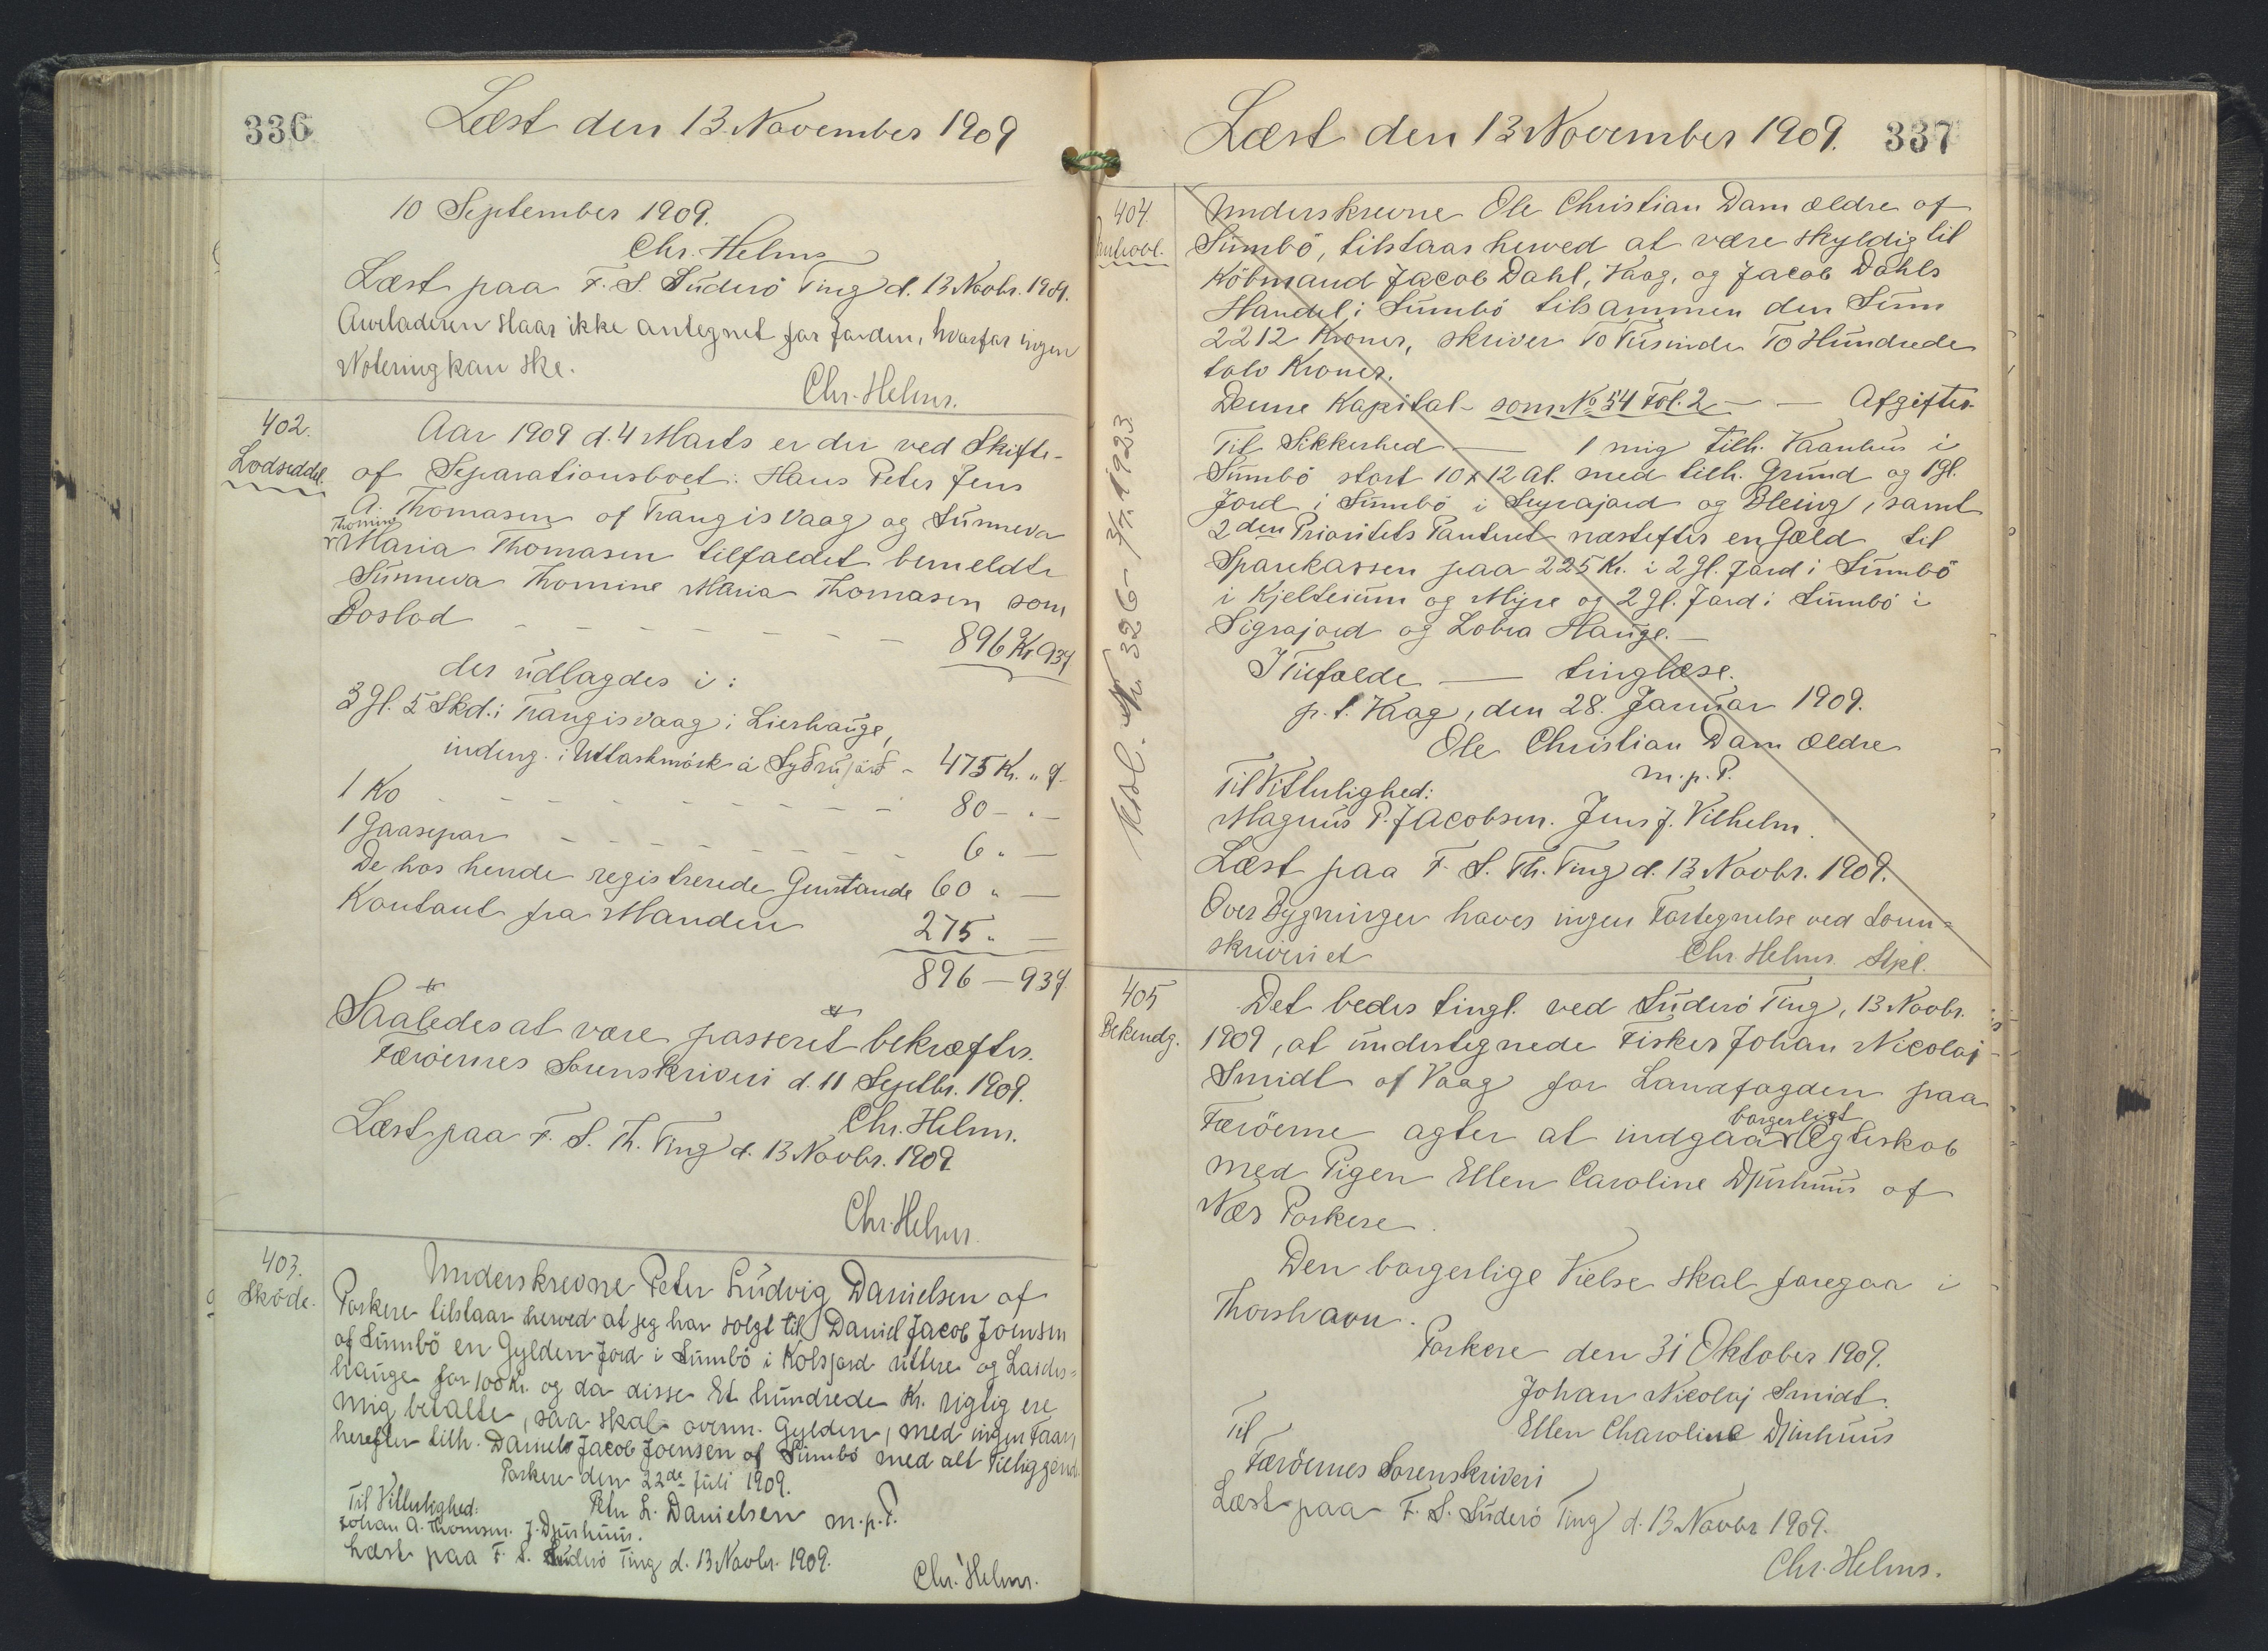 336
Læst den 13. November 1909
10 September 1909.
Chr. Helms
Læst paa F. S. Suderö Ting d. 13 Novbr. 1909.
staar ikke antegnet for Jorden, hvorfor ingen
Notering kan ske.
Chr. Helms.
402.
Lodseddel.
Aar 1909 d. 4 Marts er der ved Skifte-
af Separationsboet: Hans Peter Jens
A. Thomasen af Trangisvaag og Sunneva
Thomine
Maria Thomasen tilfaldet bemeldte
Sunneva Thomine Maria Thomasen som
Boslod - - - - - - - 896 Kr 93 Ø
der udlagdes i:
3 Gl. 5 Skd. i Trangisvaag i Lierhauge,
indeng. i á 475 Kr. " Ø
1 Ko - - - - - - - - - - 80 - " -
1 Gaasepar - - - - - - - - 6 " -
De hos hende registrerede Genstande 60 " -
Kontant fra Manden 275 " -
896 - 93 Ø
Saaledes at være passeret bekræftes.
Færöernes Sorenskriveri d. 11 Septbr. 1909.
Chr. Helms.
Læst paa F. S. Th. Ting d. 13 Novbr. 1909.
Chr. Helms
403.
Sköde.
Underskrevne Peter Ludvig Danielsen af
Porkere tilstaar herved at jeg har solgt til Daniel Jacob Joensen
af Sumbö en Gylden Jord i Sumbö i Kolsjord uttere og Lardes=
hauge for 100 Kr. og da disse Et hundrede Kr. rigtig ere
mig betalte, saa skal ovenn. Gylden, med ingen Faar,
herefter tilh. Daniel Jacob Joensen af Sumbö med alt Tilliggende.
Porkere den 22de Juli 1909.
Til Vitterlighed: Peter L. Danielsen m.p.P.
Johan A. Thomsen. J. Djurhuus.
Læst paa F. S. Suderö Ting d. 13 Novbr. 1909.
Chr. Helms.
Læst den 13 November 1909. 337
404.
Underskrevne Ole Christian Dam ældre af
Sumbö, tilstaar herved at være skyldig til
Köbmand Jacob Dahl, Vaag, og Jacob Dahls
Handel i Sumbö tilsammen den Sum
2212 Kroner, skriver To Tusinde To Hundrede
tolv Kroner.
Denne Kapital - som No 54 Fol. 2 - - Afgifter.
Til Sikkerhed - 1 mig tilh. Vaanhus i
Sumbö stort 10 x 12 Al. med tilh. Grund og 1 Gl.
Jord i Sumbö i og , samt
2den Prioritets Panteret næstefter en Gæld til
Sparekassen paa 225 Kr. i 2 Gl. Jord i Sumbö
i og Myre og 2 Gl. Jord i Sumbö i
Sigrajord og Hauge. -
I Tilfælde - tinglæse.
p. t. Vaag, den 28. Januar 1909.
Ole Christian Dam ældre
m. p. P.
Til Vitterlighed:
Magnus P. Jacobsen. Jens J. Vilhelm.
Læst paa F. S. Th. Ting d. 13 Novbr. 1909.
Over Bygninger haves ingen Fortegnelse ved Soren=
skriveriet
Chr Helms. Stpl.
Nr. 326 - 3/7. 1923
405
Bekendg.
Det bedes tingl. ved Suderö Ting, 13 Novbr.
1909, at undertegnede Fisker Johan Nicolaj
Smidt af Vaag for Landfogden paa
borgerligt
Færöerne agter at indgaa Ægteskab
med Pigen Ellen Caroline Djurhuus af
Næs Porkere.
Den borgerlige Vielse skal foregaa i
Thorshavn.
Porkere den 31 Oktober 1909.
Johan Nicolaj Smidt.
Ellen Charoline Djurhuus
Til
Færöernes Sorenskriveri
Læst paa F. S. Suderö Ting d. 13 Novbr 1909.
Chr. Helms.